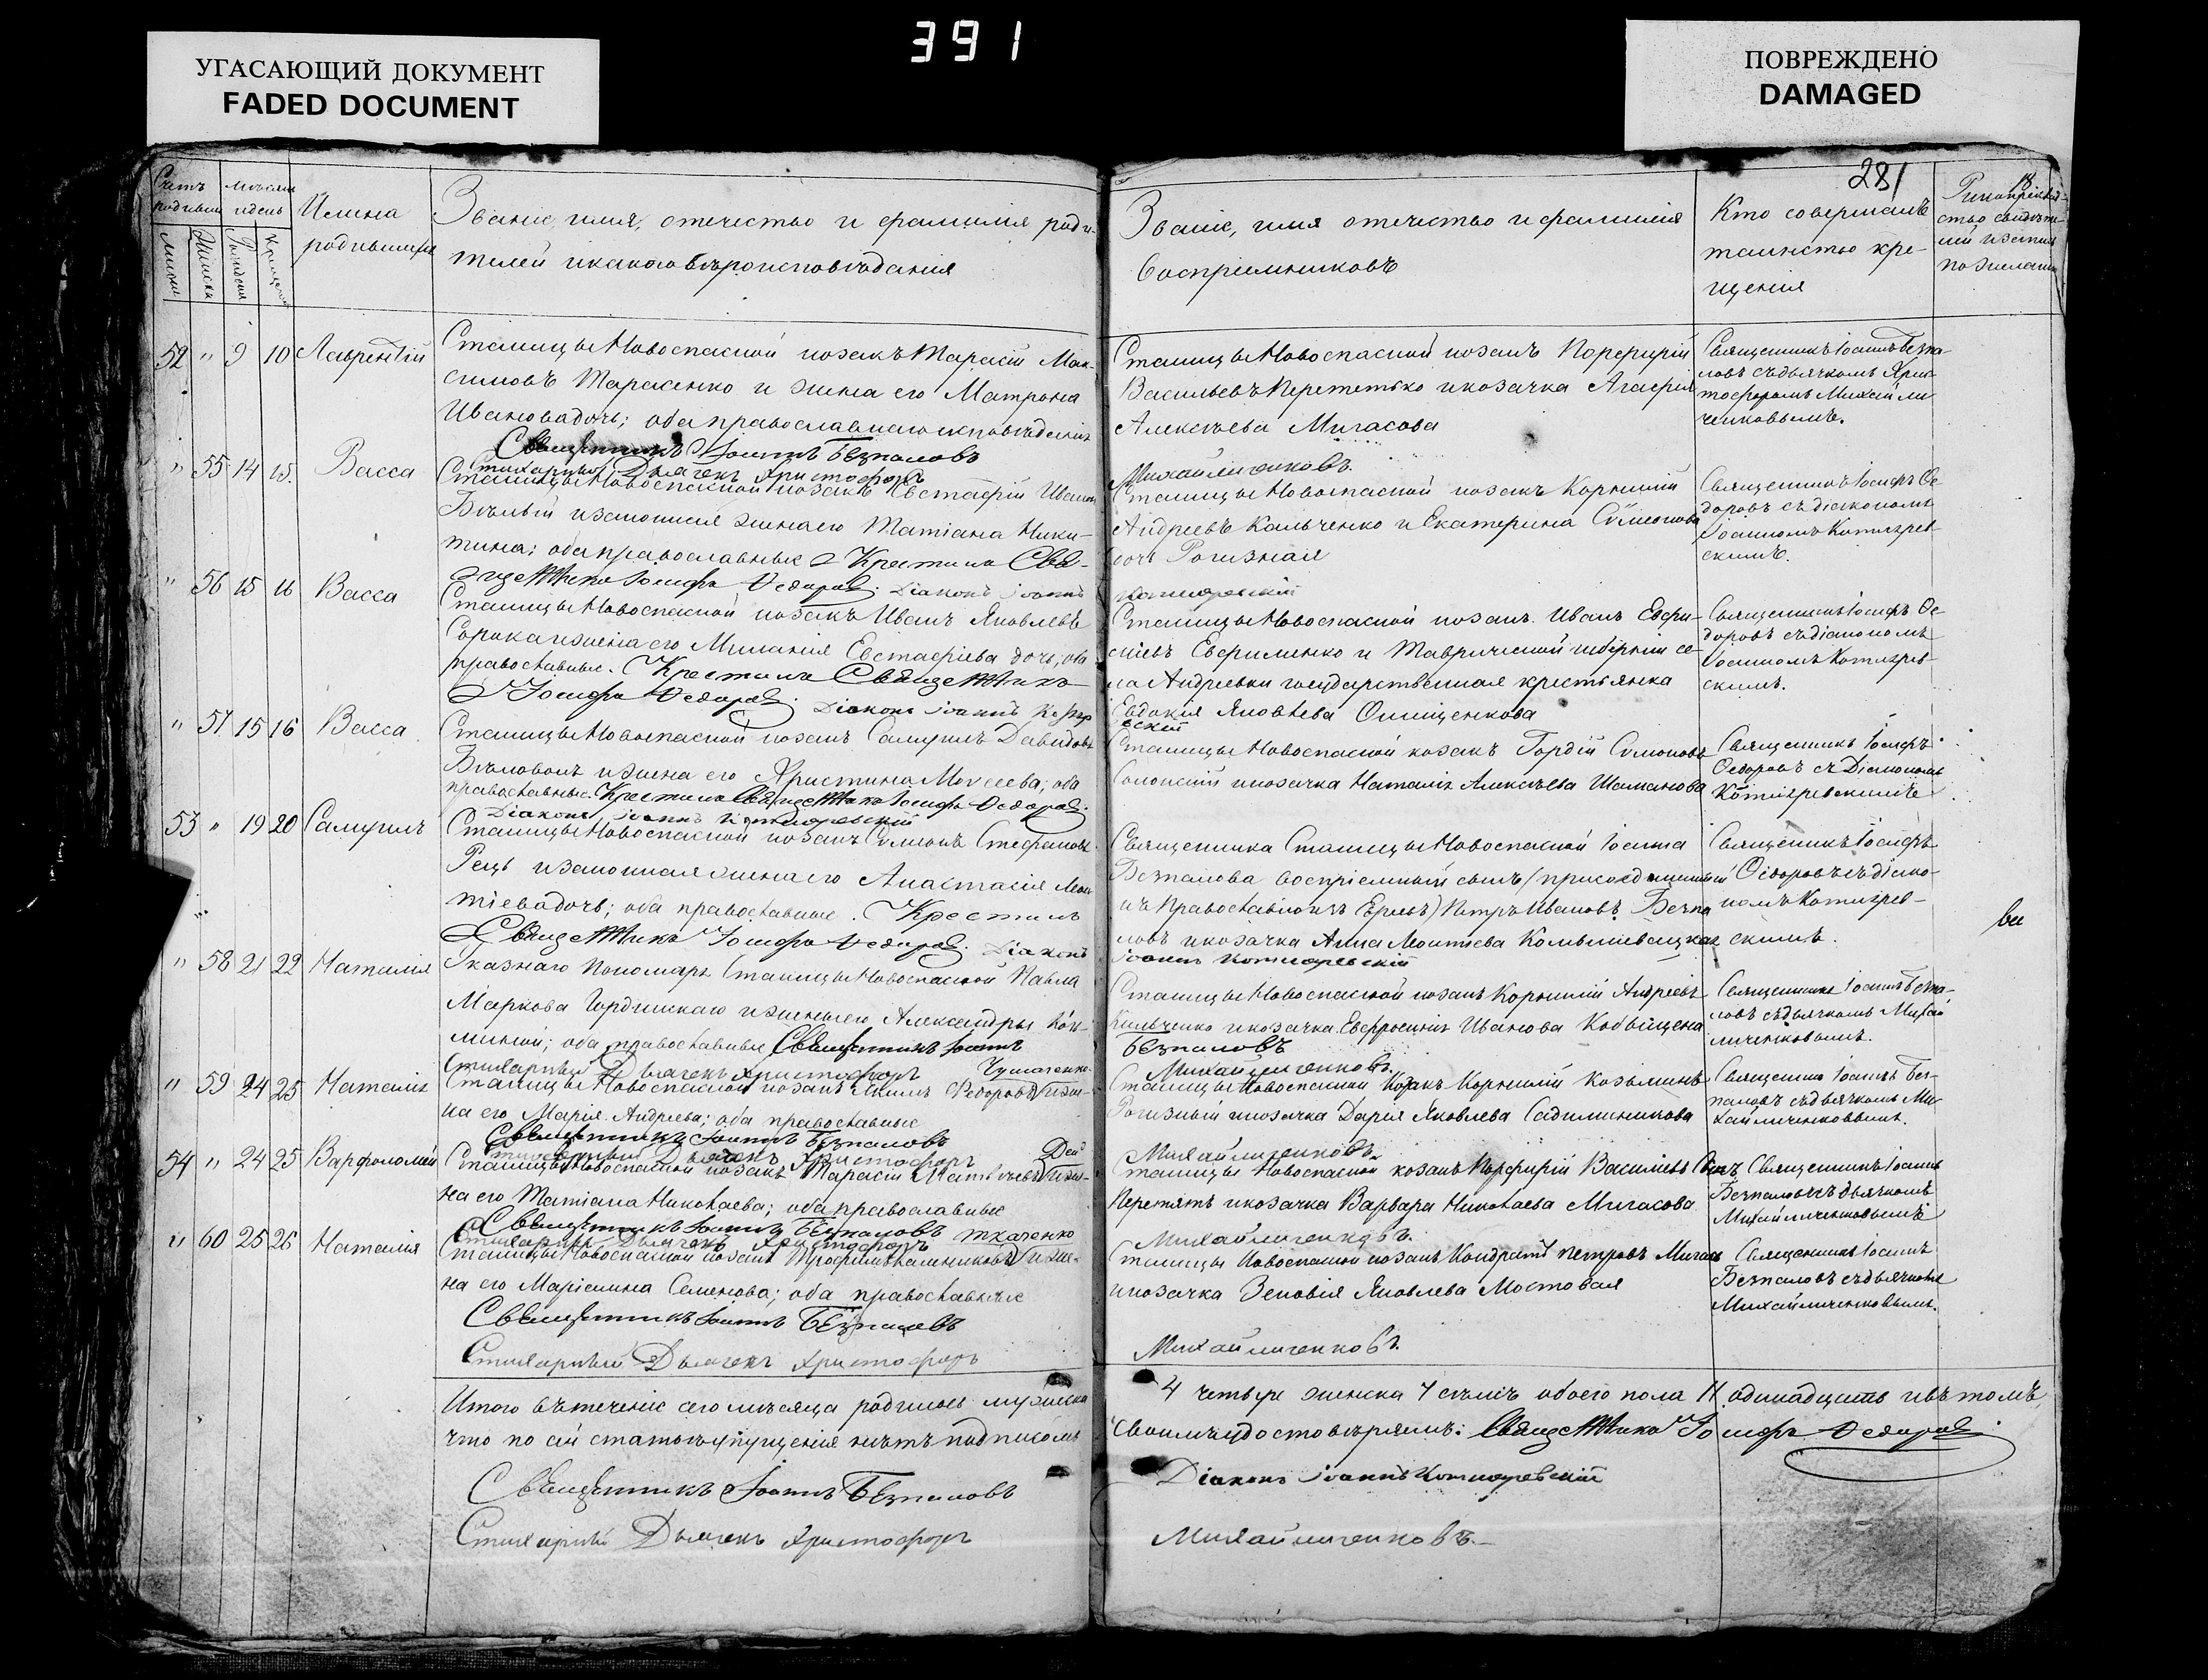 391
УГАСАЮЩИЙ ДОКУМЕНТ
FADED DOCUMENT
ПОВРЕЖДЕНО
DAMAGED
281
Счетъ родившихся
Мужска
Женска
мѣсяцъ и день
Рожденія
Крещенія
Имена
родившихся
Званіе, имя, отечество и фамилія роди-
телей и какого вѣроисповѣданія
Званіе, имя отечество и фамилія
Воспріемниковъ
Кто совершалъ
таинство кре-
щенія
52 " 9 10 Лаврентій
Станицы Новоспаской козакъ Тарасій Мак-
симовъ Тарасенко и жена его Матрона
Иванова дочь; оба православнаго исповѣданія
Священникъ Іоаннъ Безпаловъ
Стихарный Дьячекъ Христофоръ
Станицы Новоспаской козакъ Порфирій
Васильевъ Перетятько и козачка Агафія
Алексѣева Мигасова
Михайличенковъ.
Священникъ Іоаннъ Безпа-
ловъ съ дьячкомъ Хрис-
тофоромъ Михайли
ченковымъ.
" 55 14 15. Васса
Станицы Новоспаской козакъ Евстафій Иванов
Бѣлый и законная жена его Татіана Ники-
тина; оба православные Крестилъ Свя-
щенникъ Іосифъ Федоровъ. Діаконъ Іоаннъ
Станицы Новоспаской козакъ Корнилій
Андреевъ Кальченко и Екатерина Сѵмеонова
дочь Рогизная
Котляревскій
Священникъ Іосифъ Ѳе
доровъ съ діакономъ
Іоанномъ Котлярев-
скимъ.
" 56 15 16 Васса
Станицы Новоспаской козакъ Иванъ Яковлевъ
Сорока и жена его Миланія Евстафіева дочь; оба
православные. Крестилъ Священникъ
Іосифъ Федоровъ. Діаконъ Іоаннъ Котляр
Станицы Новоспаской козакъ Иванъ Евфи-
міевъ Ефименко и Таврической губерніи се-
ла Андреевки государственная крестьянка
Евдокія Яковлева Онищенкова
евскій
Священникъ Іосифъ Ѳе
доровъ съ діакономъ
Іоанномъ Котлярев-
скимъ.
" 57 15 16 Васса
Станицы Новоспаской козакъ Самуилъ Давидовъ
Бѣловолъ и жена его Христина Моѵсеева; оба
православные. Крестилъ Священникъ Іосифъ Федоровъ.
Діаконъ Іоаннъ Котляревскій
Станицы Новоспаской козакъ Гордій Сѵмоновъ
Солонскій и козачка Наталія Алексѣева Шаманова
Священникъ Іосифъ
Ѳедоровъ съ Діакономъ
Котляревскимъ
53 " 19 20 Самуилъ
Станицы Новоспаской козакъ Сѵмеонъ Стефановъ
Рець и законная жена его Анастасія Леон
тіева дочь; оба православные. Крестилъ
Священникъ Іосифъ Федоровъ. Діаконъ
Священника Станицы Новоспаской Іоанна
Безпалова воспріемный сынъ (присоединенный
къ Православію изъ Евреевъ) Петръ Ивановъ Безпа
ловъ и козачка Анна Леонтіева
Іоаннъ Котляревскій
Священникъ Іосифъ
Ѳедоровъ съ діако-
номъ Котлярев-
скимъ.
" 58 21 22 Наталія
Указнаго Пономаря Станицы Новоспаской Павла
Маркова Гординскаго и жены его Александры Козь-
миной; оба православные Священникъ Іоаннъ
Стихарный Дьячекъ Христофоръ
Станицы Новоспаской козакъ Корнилій Андреевъ
Кальченко и козачка Евфросинія Иванова Кобыщена
Безпаловъ
Михайличенковъ.
Священникъ Іоаннъ Безпа-
ловъ съ дьячкомъ Михай
личенковымъ.
" 59 24 25 Наталія
Чумаченко
Станицы Новоспаской козакъ Якимъ Федоровъ и же-
на его Марія Андреева; оба православные
Священникъ Іоаннъ Безпаловъ
Стихарный Дьячекъ Христофоръ
Станицы Новоспаской Козакъ Корнилій Козьминъ
Рогизный и козачка Дарія Яковлева
Михайличенковъ.
Священникъ Іоаннъ Без-
паловъ съ дьячкомъ Ми-
хайличенковымъ.
54 " 24 25 Варфоломей
Дей
Станицы Новоспаской козакъ Тарасій Матвѣевъ и же-
на его Татіана Николаева; оба православные
Священникъ Іоаннъ Безпаловъ
Стихарный Дьячекъ Христофоръ
Станицы Новоспаской козакъ Порфирій Васильевъ Сынъ
Перетятъ и козачка Варвара Николаева Мигасова
Михайличенковъ.
Священникъ Іоаннъ
Безпаловъ съ дьячкомъ
Михайличенковымъ
" 60 25 26 Наталія
Ткаченко
Станицы Новоспаской козакъ Трофимъ и же-
на его Маріамна Семенова; оба православные
Священникъ Іоаннъ Безпаловъ
Стихарный Дьячекъ Христофоръ
Станицы Новоспаской козакъ Кондратъ Петровъ Мигасъ
и козачка Зеновія Яковлева Мостовая
Михайличенковъ.
Священникъ Іоаннъ
Безпаловъ съ дьячкомъ
Михайличенковымъ.
Итого въ теченіе сего мѣсяца родилось мужеска
4 четыре женска 7 семь обоего пола 11 одинадцать и въ томъ,
что по сей статьѣ упущенія нѣтъ подписомъ
своимъ удостовѣряемъ: Священникъ Іосифъ Федоровъ
Діаконъ Іоаннъ Котляревскій
Священникъ Іоаннъ Безпаловъ
Стихарный Дьячекъ Христофоръ
Михайличенковъ.